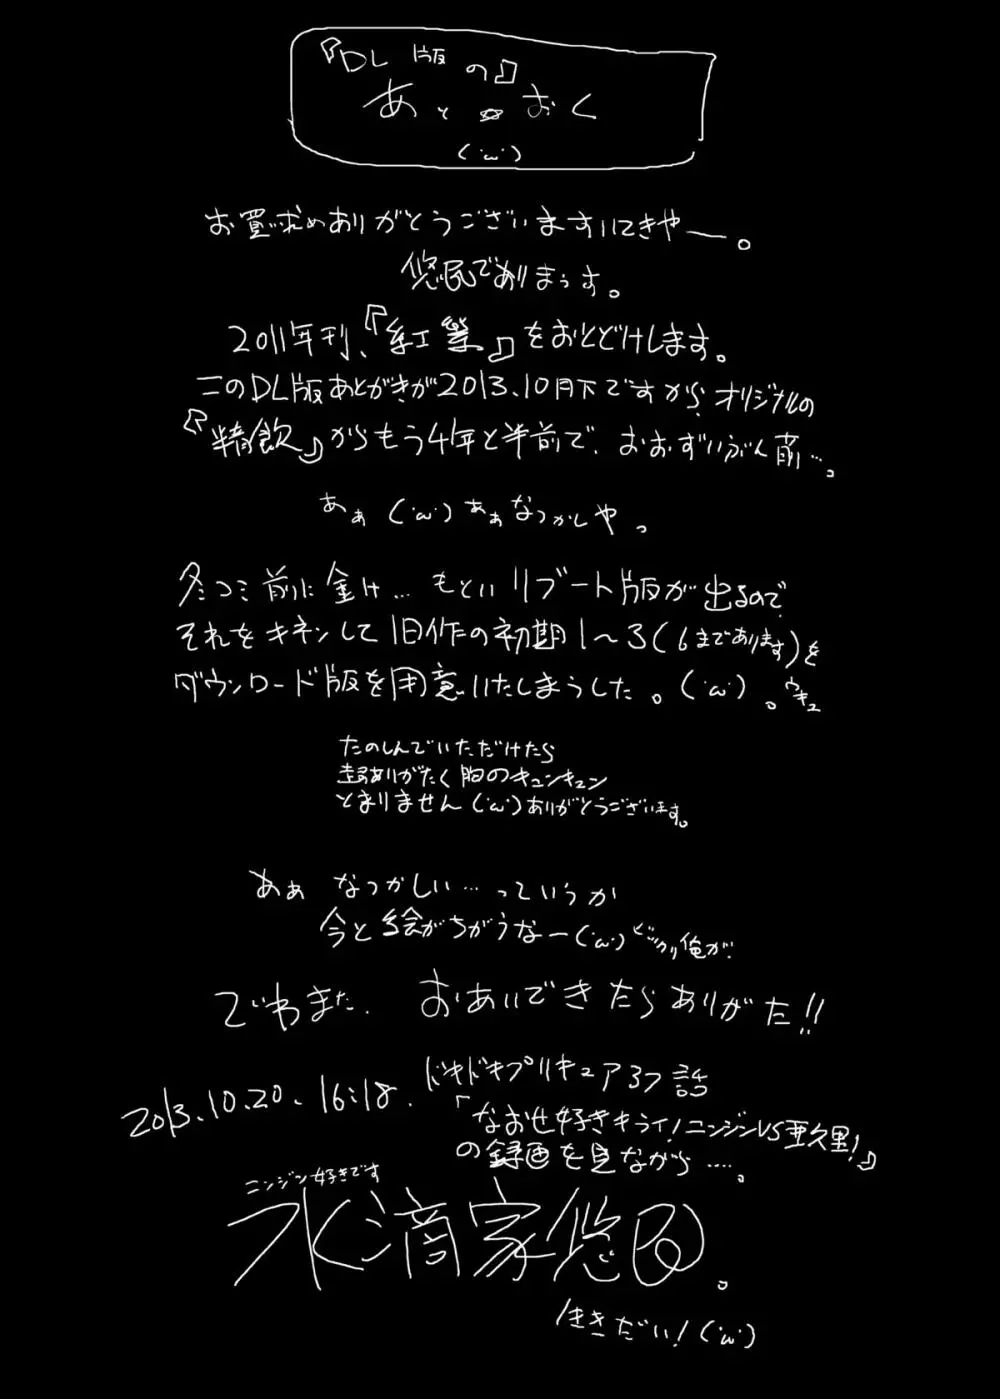 『DL版の』
あと☆おく
(・ω・)
お買求めありがとうございますいてきやー。
悠民でありまうす。
2011年刊、『紅業』をおとどけします。
このDL版あとがきが2013.10月下ですから、オリジナルの
『精飲』からもう4年と半前で、おおずいぶん前…。
あぁ(・ω・)あぁなつかしや。
冬コミ前に金け…もといリブート版が出るので
それをキネンして旧作の初期1～3(6まであります)を
ダウンロード版を用意いたしまうした。(・ω・)。ウキュ
たのしんでいただけたら
ありがたく胸のキュンキュン
とまりません(・ω・)ありがとうございます。
あぁ なつかしい…っていうか
今と絵がちがうなー(・ω・)ビックリ俺が!
でわまた. おあいできたらありがた!!
2013.10.20、16:18. ドキドキプリキュア37話
「なおせ好きキライ!ニンジンVS亜久里!」
の録画を見ながら…。
ニンジン好きです
水滴家悠民。
生きだい!(・ω・)